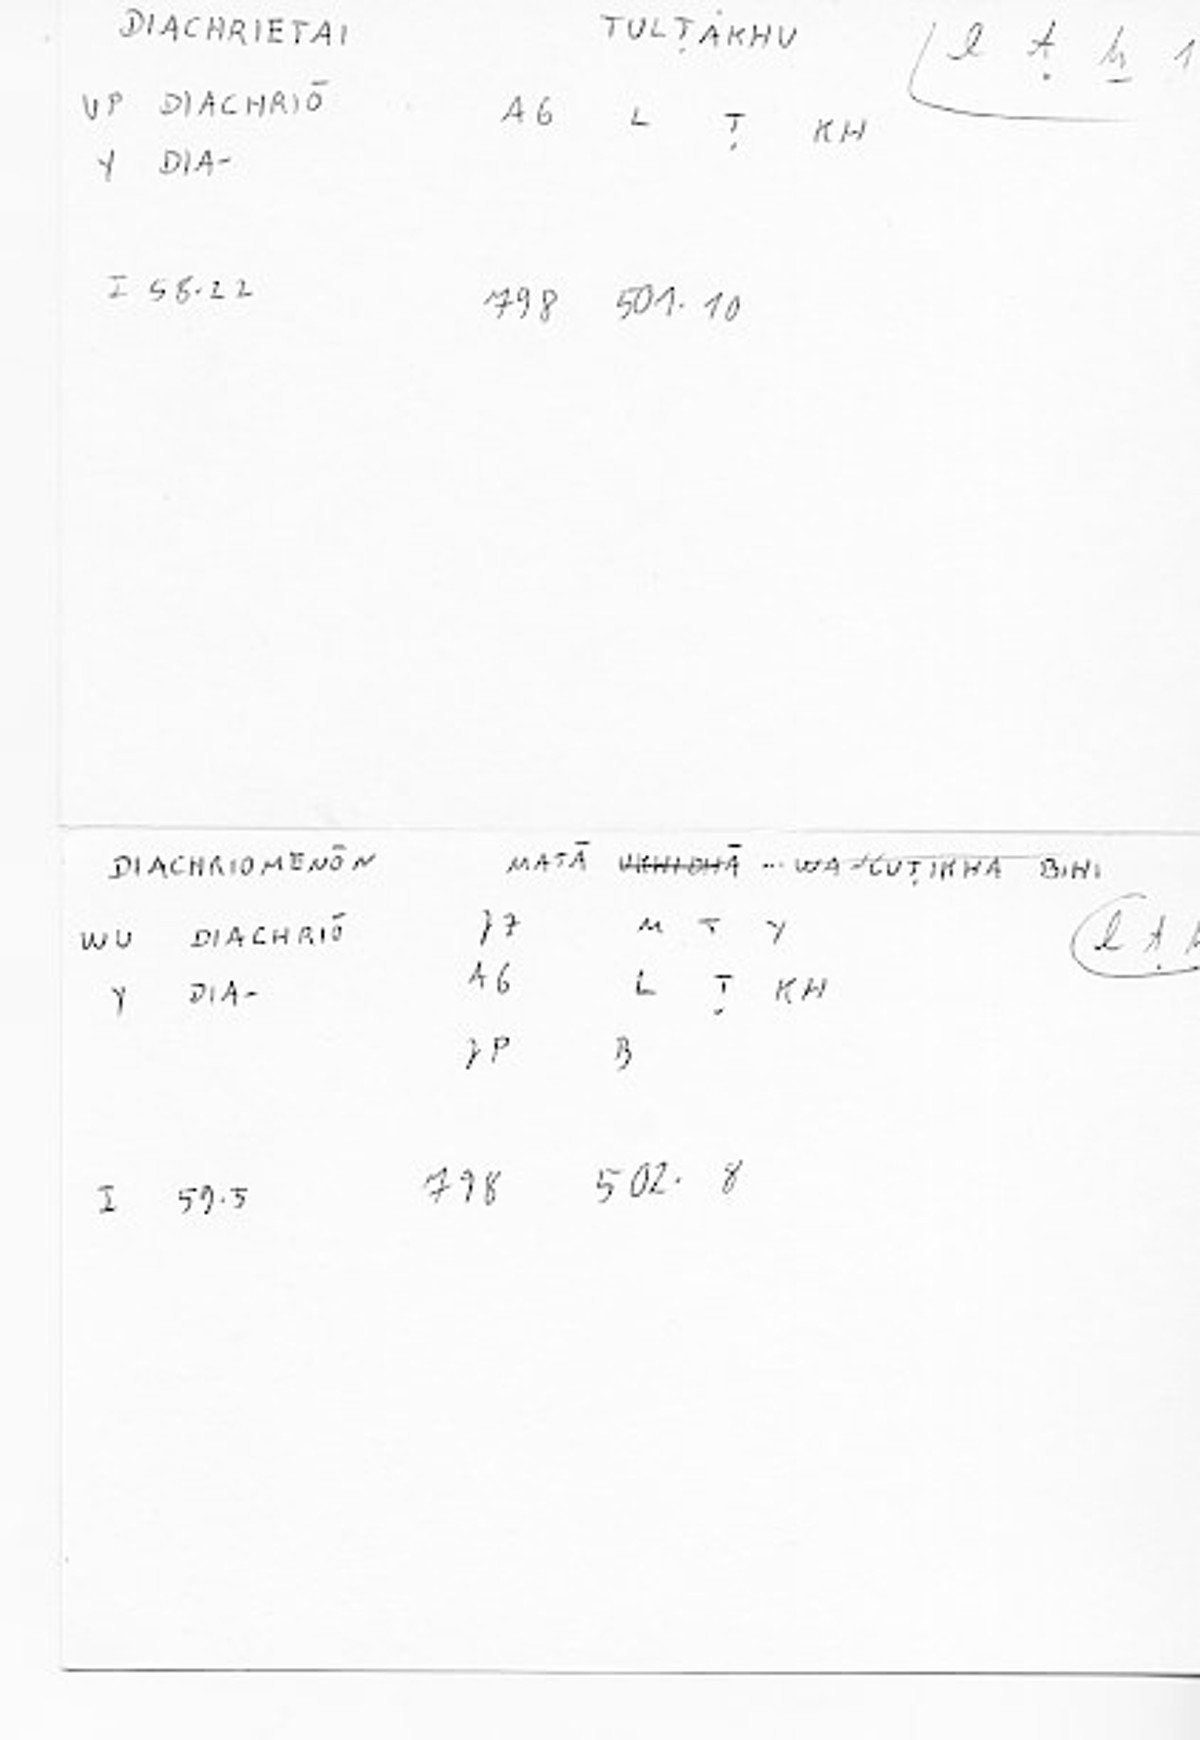 DIACHRIETAI TULṬAKHU l ṭ ḫ 1
VP DIACHRIŌ A6 L Ṭ KH
Y DIA-
I 58.22 798 501. 10
DIACHRIOMENŌN MATĀ UKHIDHĀ ... WA-LUṬIKHA BIHI
WU DIACHRIŌ J7 M T Y l ṭ
Y DIA- A6 L Ṭ KH
JP B
I 59.5 798 502. 8